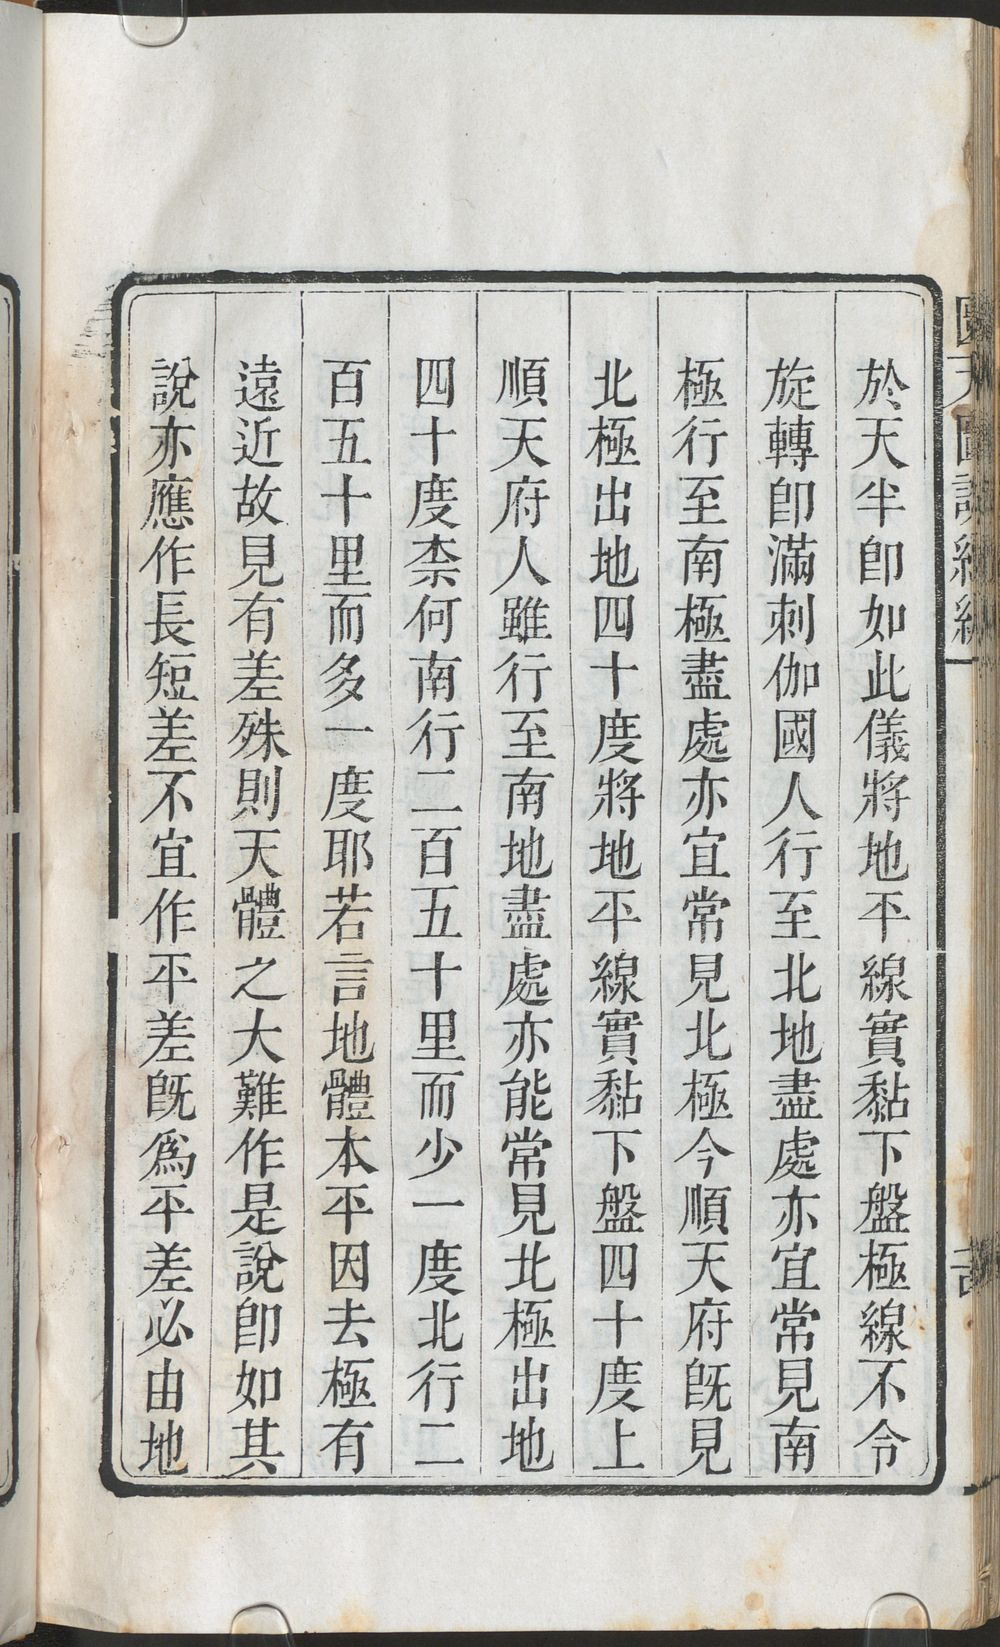 於天半卽如此儀將地平線實黏下盤極線不令
旋轉卽滿刺伽國人行至北地盡處亦宜常見南
極行至南極盡處亦宜常見北極今順天府旣見
北極出地四十度將地平線實黏下盤四十度上
順天府人雖行至南地盡處亦能常見北極出地
四十度柰何南行二百五十里而少一度北行二
百五十里而多一度耶若言地體本平因去極有
遠近故見有差殊則天體之大難作是說卽如其
說亦應作長短差不宜作平差旣爲平差必由地